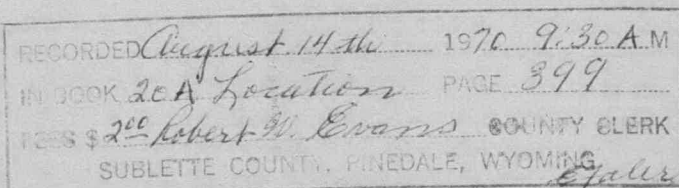 RECORDED August 14th 1970 9:30 A M
IN BOOK 20A Location PAGE 399
FEES $ 2.00 Robert W. Evans COUNTY CLERK
SUBLETTE COUNTY, PINEDALE, WYOMING